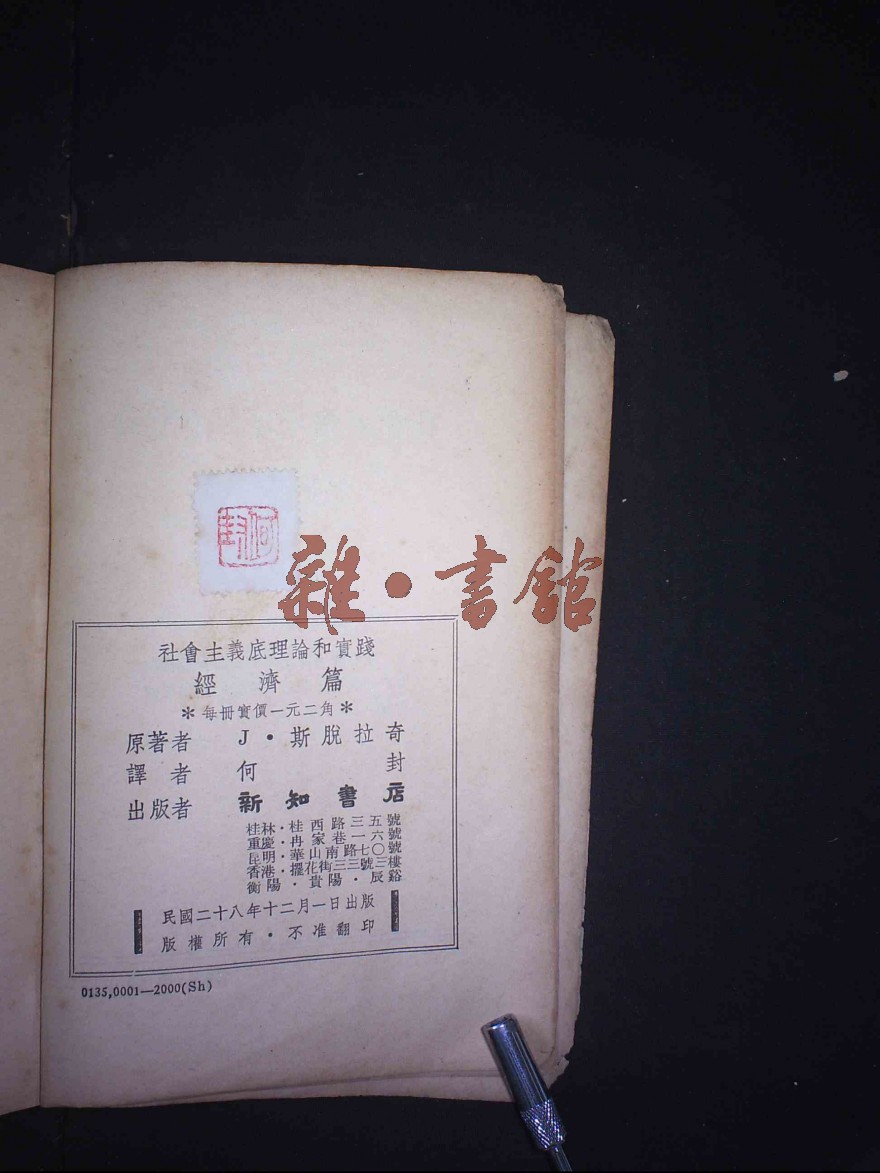 何封
雜·書館
社會主義底理論和實踐
經濟篇
＊每冊實價一元二角＊
原著者 J·斯脫拉奇
譯者 何封
出版者 新知書店
桂林·桂西路三五號
重慶·冉家巷一六號
昆明·華山南路七〇號
香港·擺花街三三號三樓
衡陽·貴陽·辰谿
民國二十八年十二月一日出版
版權所有·不准翻印
0135,0001—2000(Sh)